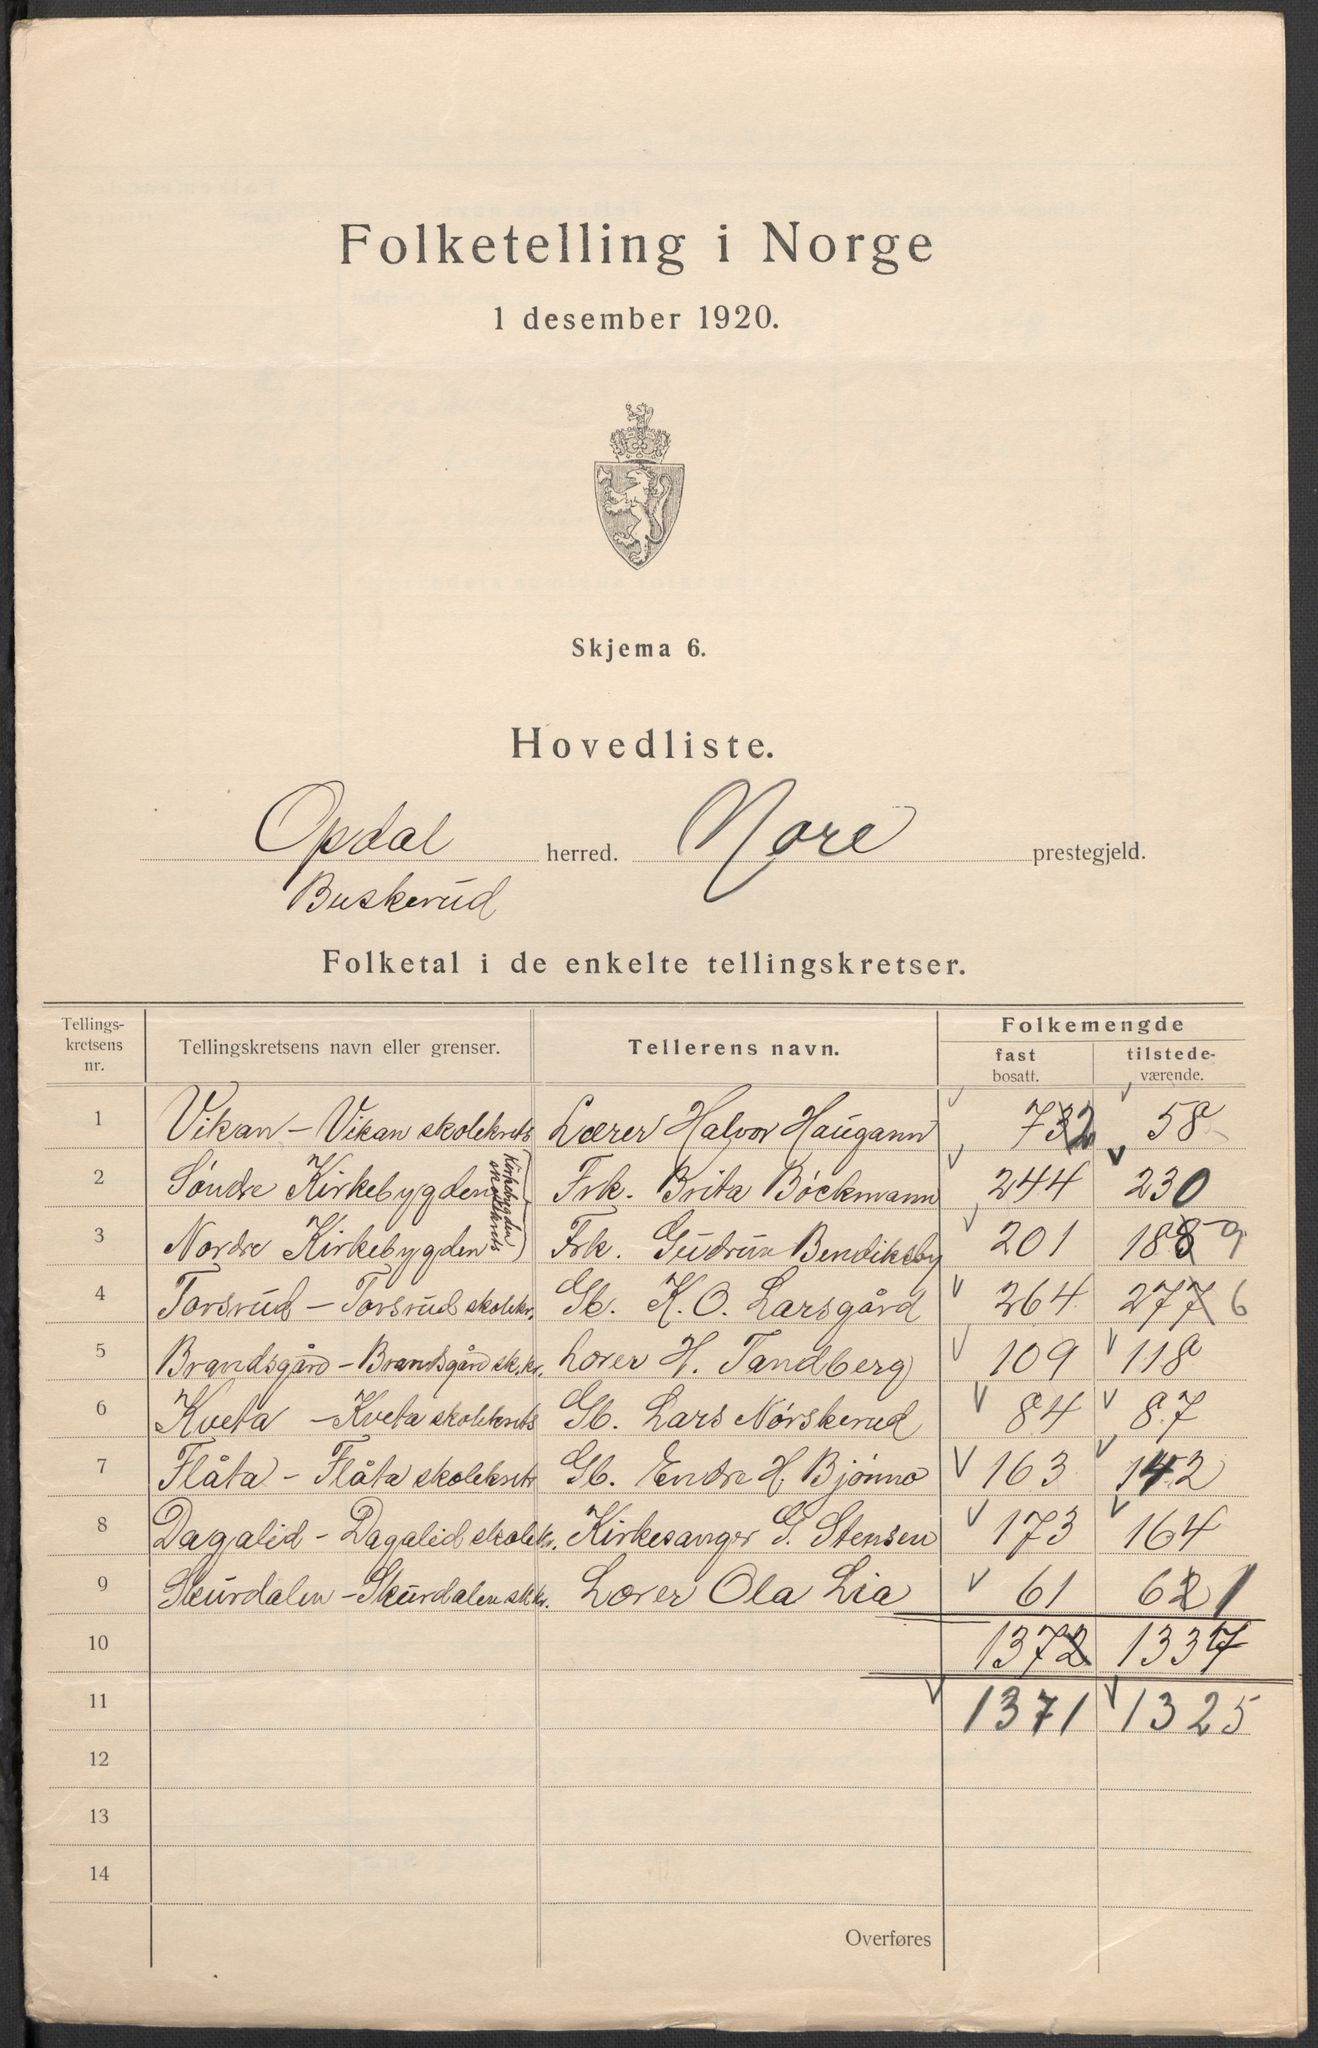 Folketelling i Norge
1 desember 1920.
Skjema 6.
Hovedliste.
Opdal herred. Nore prestegjeld.
Buskerud
Folketal i de enkelte tellingskretser.
Tellings-kretsens nr. Tellingskretsens navn eller grenser. Tellerens navn. Folkemengde fast bosatt. tilstede-værende.
1 Vikan - Vikan skolekrets Lærer Halvor Haugann 732 58
2 Søndre Kirkebygden Kirkebygden skolekrets Frk. Brita Bøckmann 244 230
3 Nordre Kirkebygden Frk. Gudrun Bendiksby 201 188 9
4 Torsrud - Torsrud skolekr. Gb. K. O. Larsgård 264 277 6
5 Brandsgård - Brandsgård sk.kr. Lærer H. Tandberg 109 118
6 Kveta - Kveta skolekrets Gb. Lars Nørskerud 84 87
7 Flåta - Flåta skolekrets Gb. Endre H. Bjønno 163 142
8 Dagalid - Dagalid skolekr. Kirkesanger G. Stensen 173 164
9 Skurdalen - Skurdalen sk.kr. Lærer Ola Lia 61 621
10 1372 1337
11 1371 1325
12
13
14
Overføres